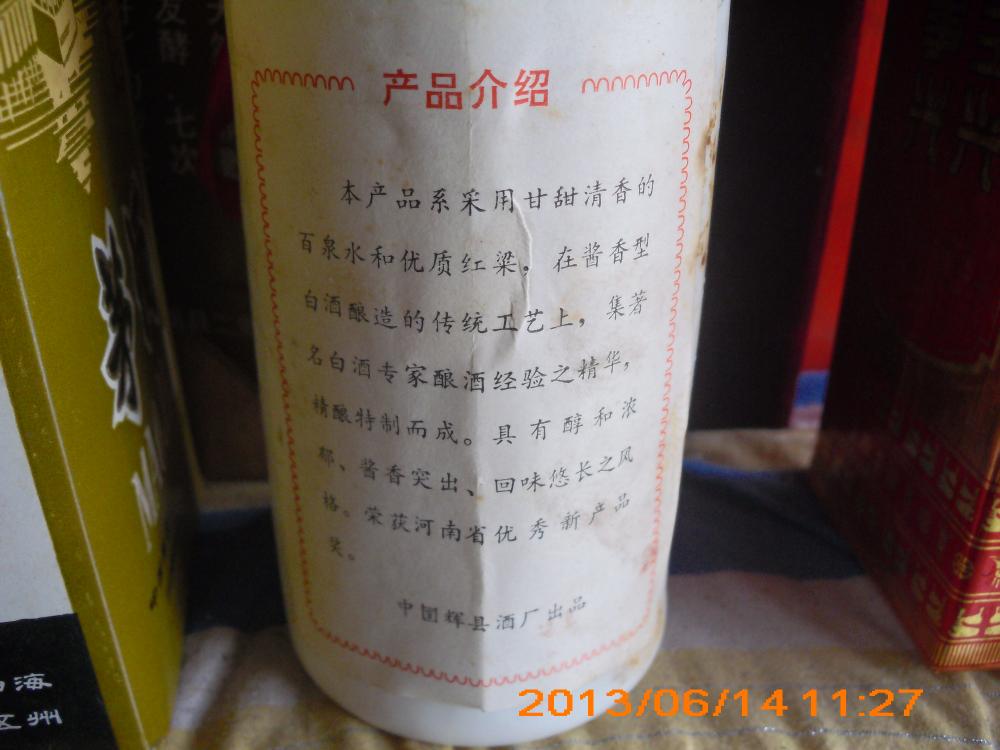 产品介绍
本产品系采用甘甜清香的
百泉水和优质红粱。在酱香型
白酒酿造的传统工艺上，集著
名白酒专家酿酒经验之精华，
精酿特制而成。具有醇和浓
郁、酱香突出、回味悠长之风
格。荣获河南省优秀新产品
奖。
中国辉县酒厂出品
发酵 七次
海
州
2013/06/14 11:27